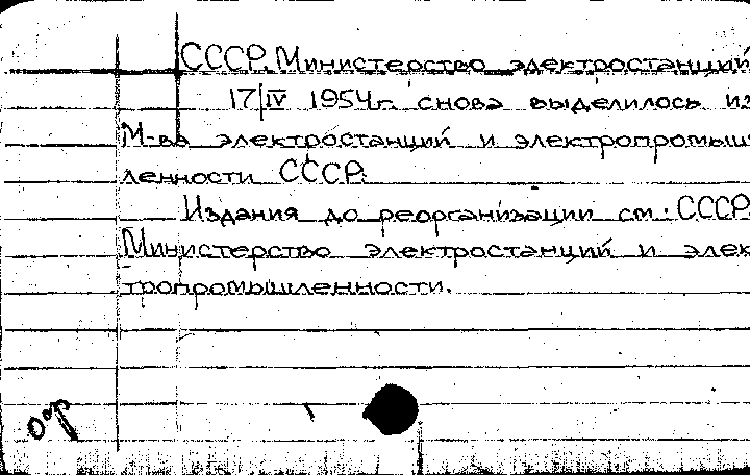 СССР. Министерство электростанций
17/IV 1954г. снова выделилось из
М-ва электростанций и электропромыш-
ленности СССР.
Издания до реорганизации см. СССР.
Министерство электростанций и элек-
тропромышленности.